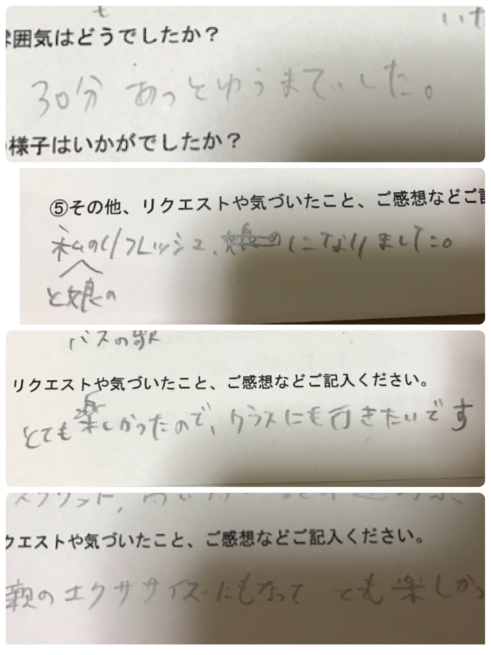 も
いた
囲気はどうでしたか？
30分 あっとゆうまでした。
様子はいかがでしたか？
⑤その他、リクエストや気づいたこと、ご感想などご記
私のリフレッシュ、になりました。
と娘の
バスの歌
リクエストや気づいたこと、ご感想などご記入ください。
とても楽しかったので、クラスにも行きたいです
クエストや気づいたこと、ご感想などご記入ください。
親のエクササイズにもなって とも楽しかっ